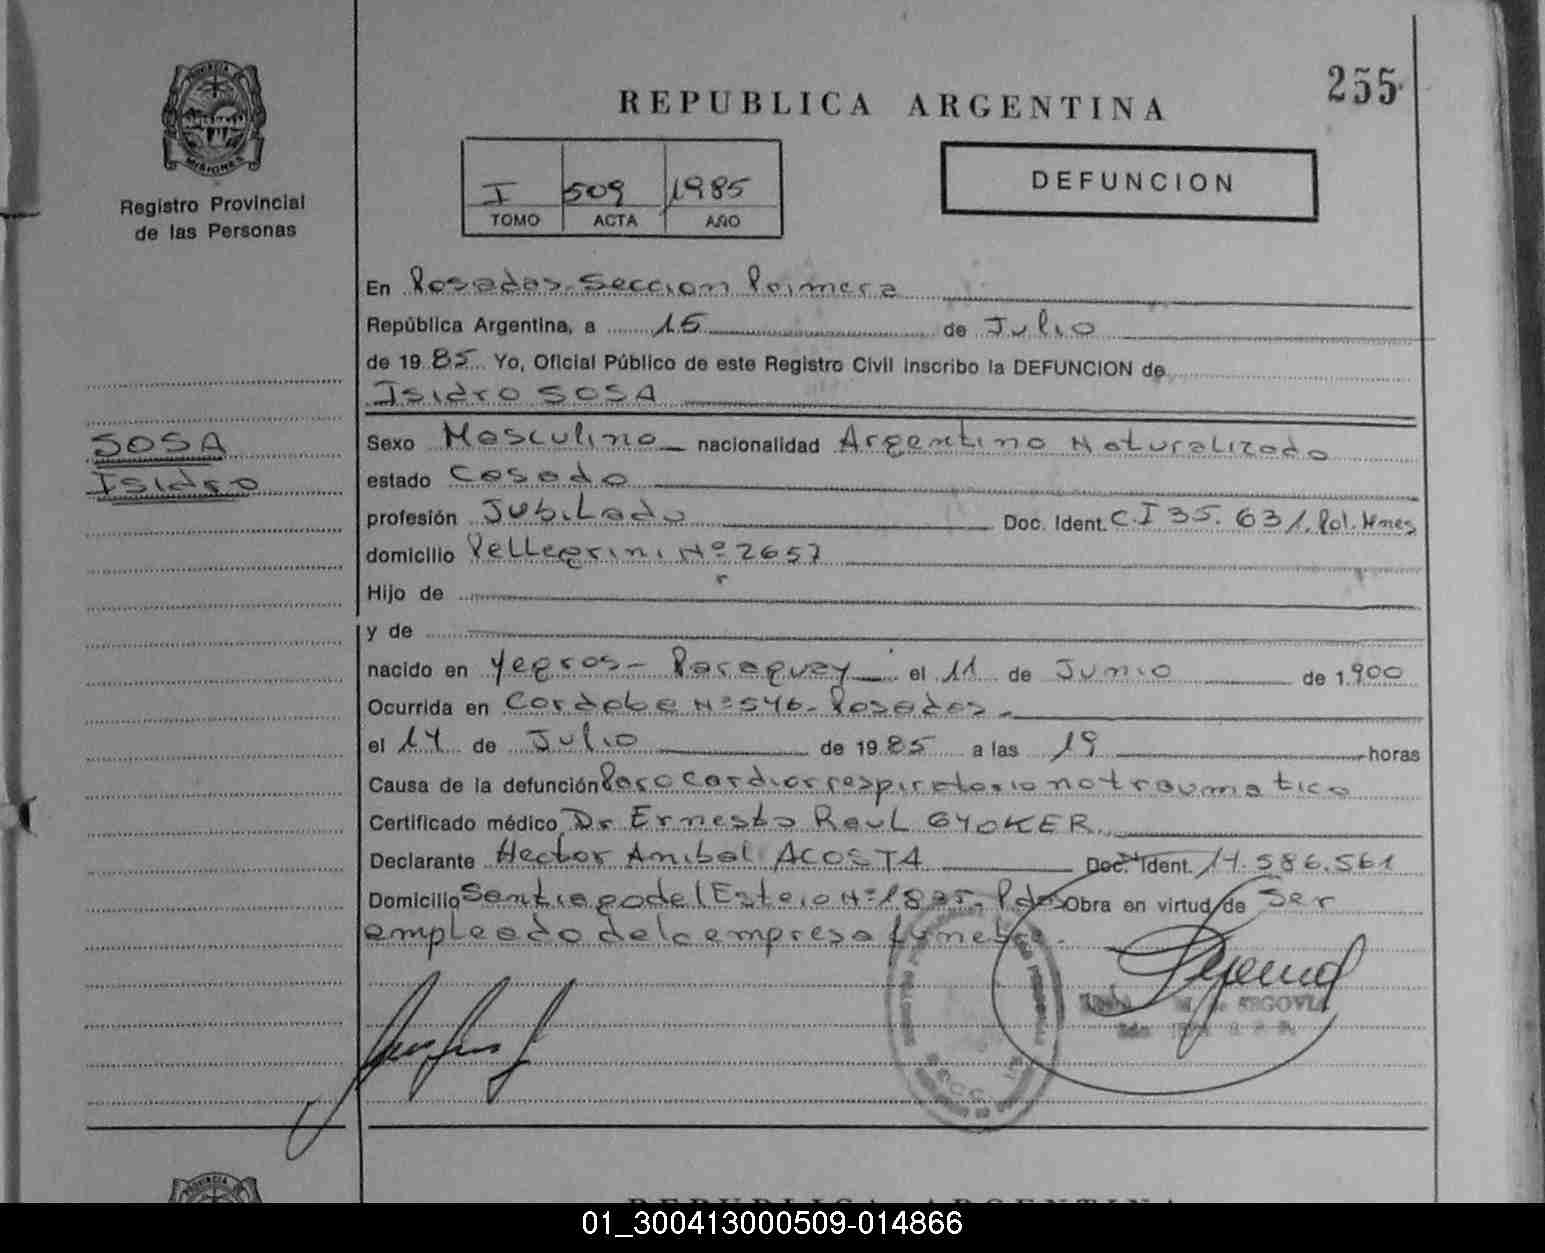 255
PROVINCIA DE
MISIONES
REPUBLICA ARGENTINA
I 509 1985
TOMO ACTA AÑO
DEFUNCION
Registro Provincial
de las Personas
En Posadas-Seccion Primera
República Argentina, a 15 de Julio
de 19 85 Yo, Oficial Público de este Registro Civil inscribo la DEFUNCION de
Isidro SOSA
SOSA
Isidro
Sexo Masculino nacionalidad Argentino Naturalizado
estado Casado
profesión Jubilado Doc. Ident. C.I 35.631. Pol. Mnes
domicilio Pellegrini Nº 2657
Hijo de
y de
nacido en Yegros- Paraguay el 11 de Junio de 1.900
Ocurrida en Cordoba Nº 546- Posadas.
el 14 de Julio de 19 85 a las 19 horas
Causa de la defunción Paro cardiorrespiratorio no traumatico
Certificado médico Dr Ernesto Raul GYOKER
Declarante Hector Anibal ACOSTA Doc. Ident. 14.586.561
Domicilio Santiago del Estero Nº Pdas Obra en virtud de Ser
empleado de la empresa funebre.
SEGOVIA
SECC.
PROVINCIA
REPUBLICA ARGENTINA
01_300413000509-014866